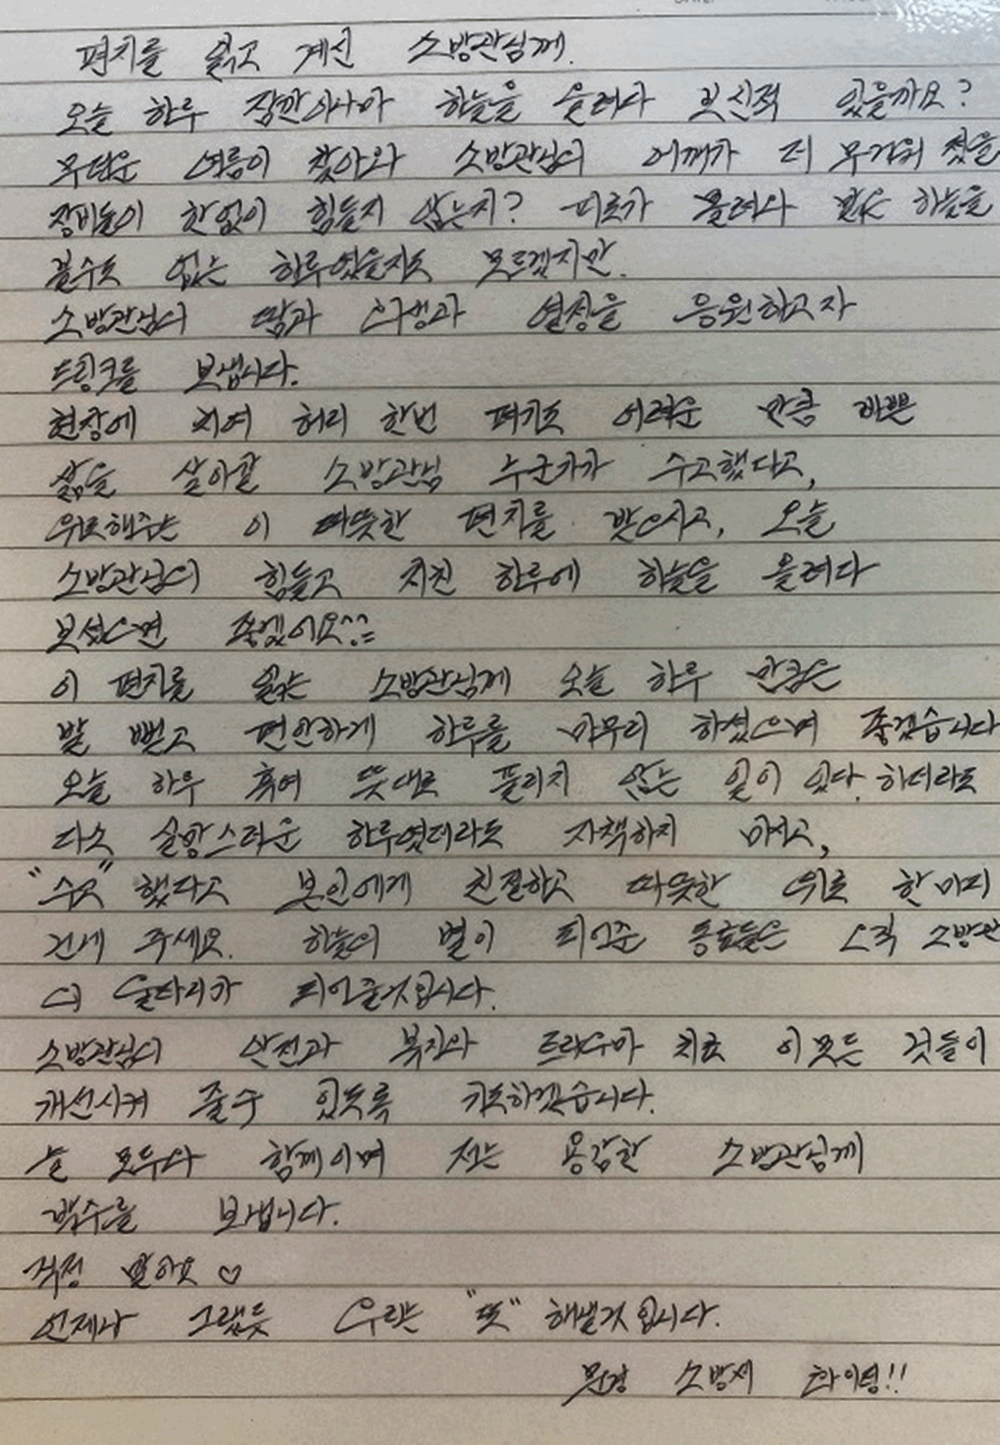 편지를 읽고 계신 소방관님께.
오늘 하루 잠깐이나마 하늘을 올려다 보신적 있을까요?
무더운 여름이 찾아와 소방관님의 어깨가 더 무거워 졌을
장비들이 한없이 힘들지 않는지? 피로가 몰려와 밝은 하늘을
볼수도 없는 하루였을지도 모르겠지만.
소방관님의 땀과 희생과 열정을 응원하고자
드링크를 보냅니다.
현장에 치여 허리 한번 펴기도 어려운 만큼 바쁜
삶을 살아갈 소방관님 누군가가 수고했다고,
위로해주는 이 따뜻한 편지를 받으시고, 오늘
소방관님의 힘들고 지친 하루에 하늘을 올려다
보셨으면 좋겠어요^^
이 편지를 읽는 소방관님께 오늘 하루 만큼은
발 뻗고 편안하게 하루를 마무리 하셨으며 좋겠습니다
오늘 하루 혹여 뜻대로 풀리지 않는 일이 있다 하더라도
다소 실망스러운 하루였더라도 자책하지 마시고,
"수고" 했다고 본인에게 친절하고 따뜻한 위로 한마디
건네 주세요. 하늘의 별이 되어준 동료들은 오직 소방관
의 울타리가 되어줄것입니다.
소방관님의 안전과 복지와 트라우마 치료 이 모든 것들이
개선시켜 줄수 있도록 기도하겠습니다.
늘 모두다 함께이며 저는 용감한 소방관님께
박수를 보냅니다.
걱정 말아요 ♡
언제나 그랬듯 우리는 "또" 해낼것 입니다.
문경 소방서 화이팅!!